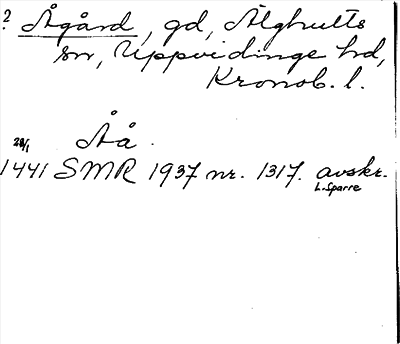 ? Ågård, gd, Älghults
sn, Uppvidinge hd,
Kronob. l.
Åå.
28/1
1441 SMR 1937 nr. 1317. avskr.
L. Sparre